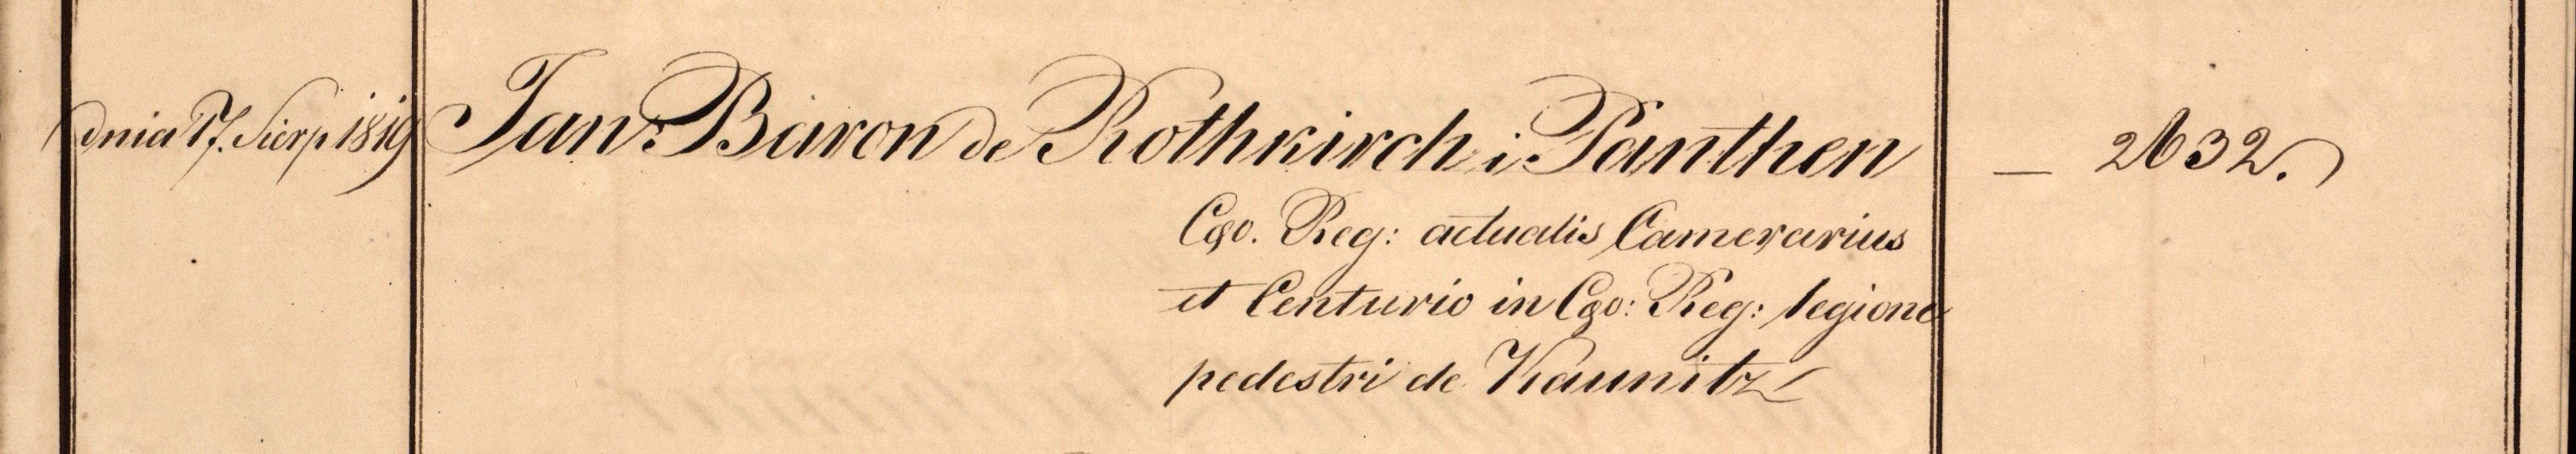 dnia 17. Sierp 1819 Jan Baron de Rothkirch i Panthen — 2632.
Cso. Reg: actualis Camerarius
et Centurio in Cso: Reg: legione
pedestri de Kaunitz